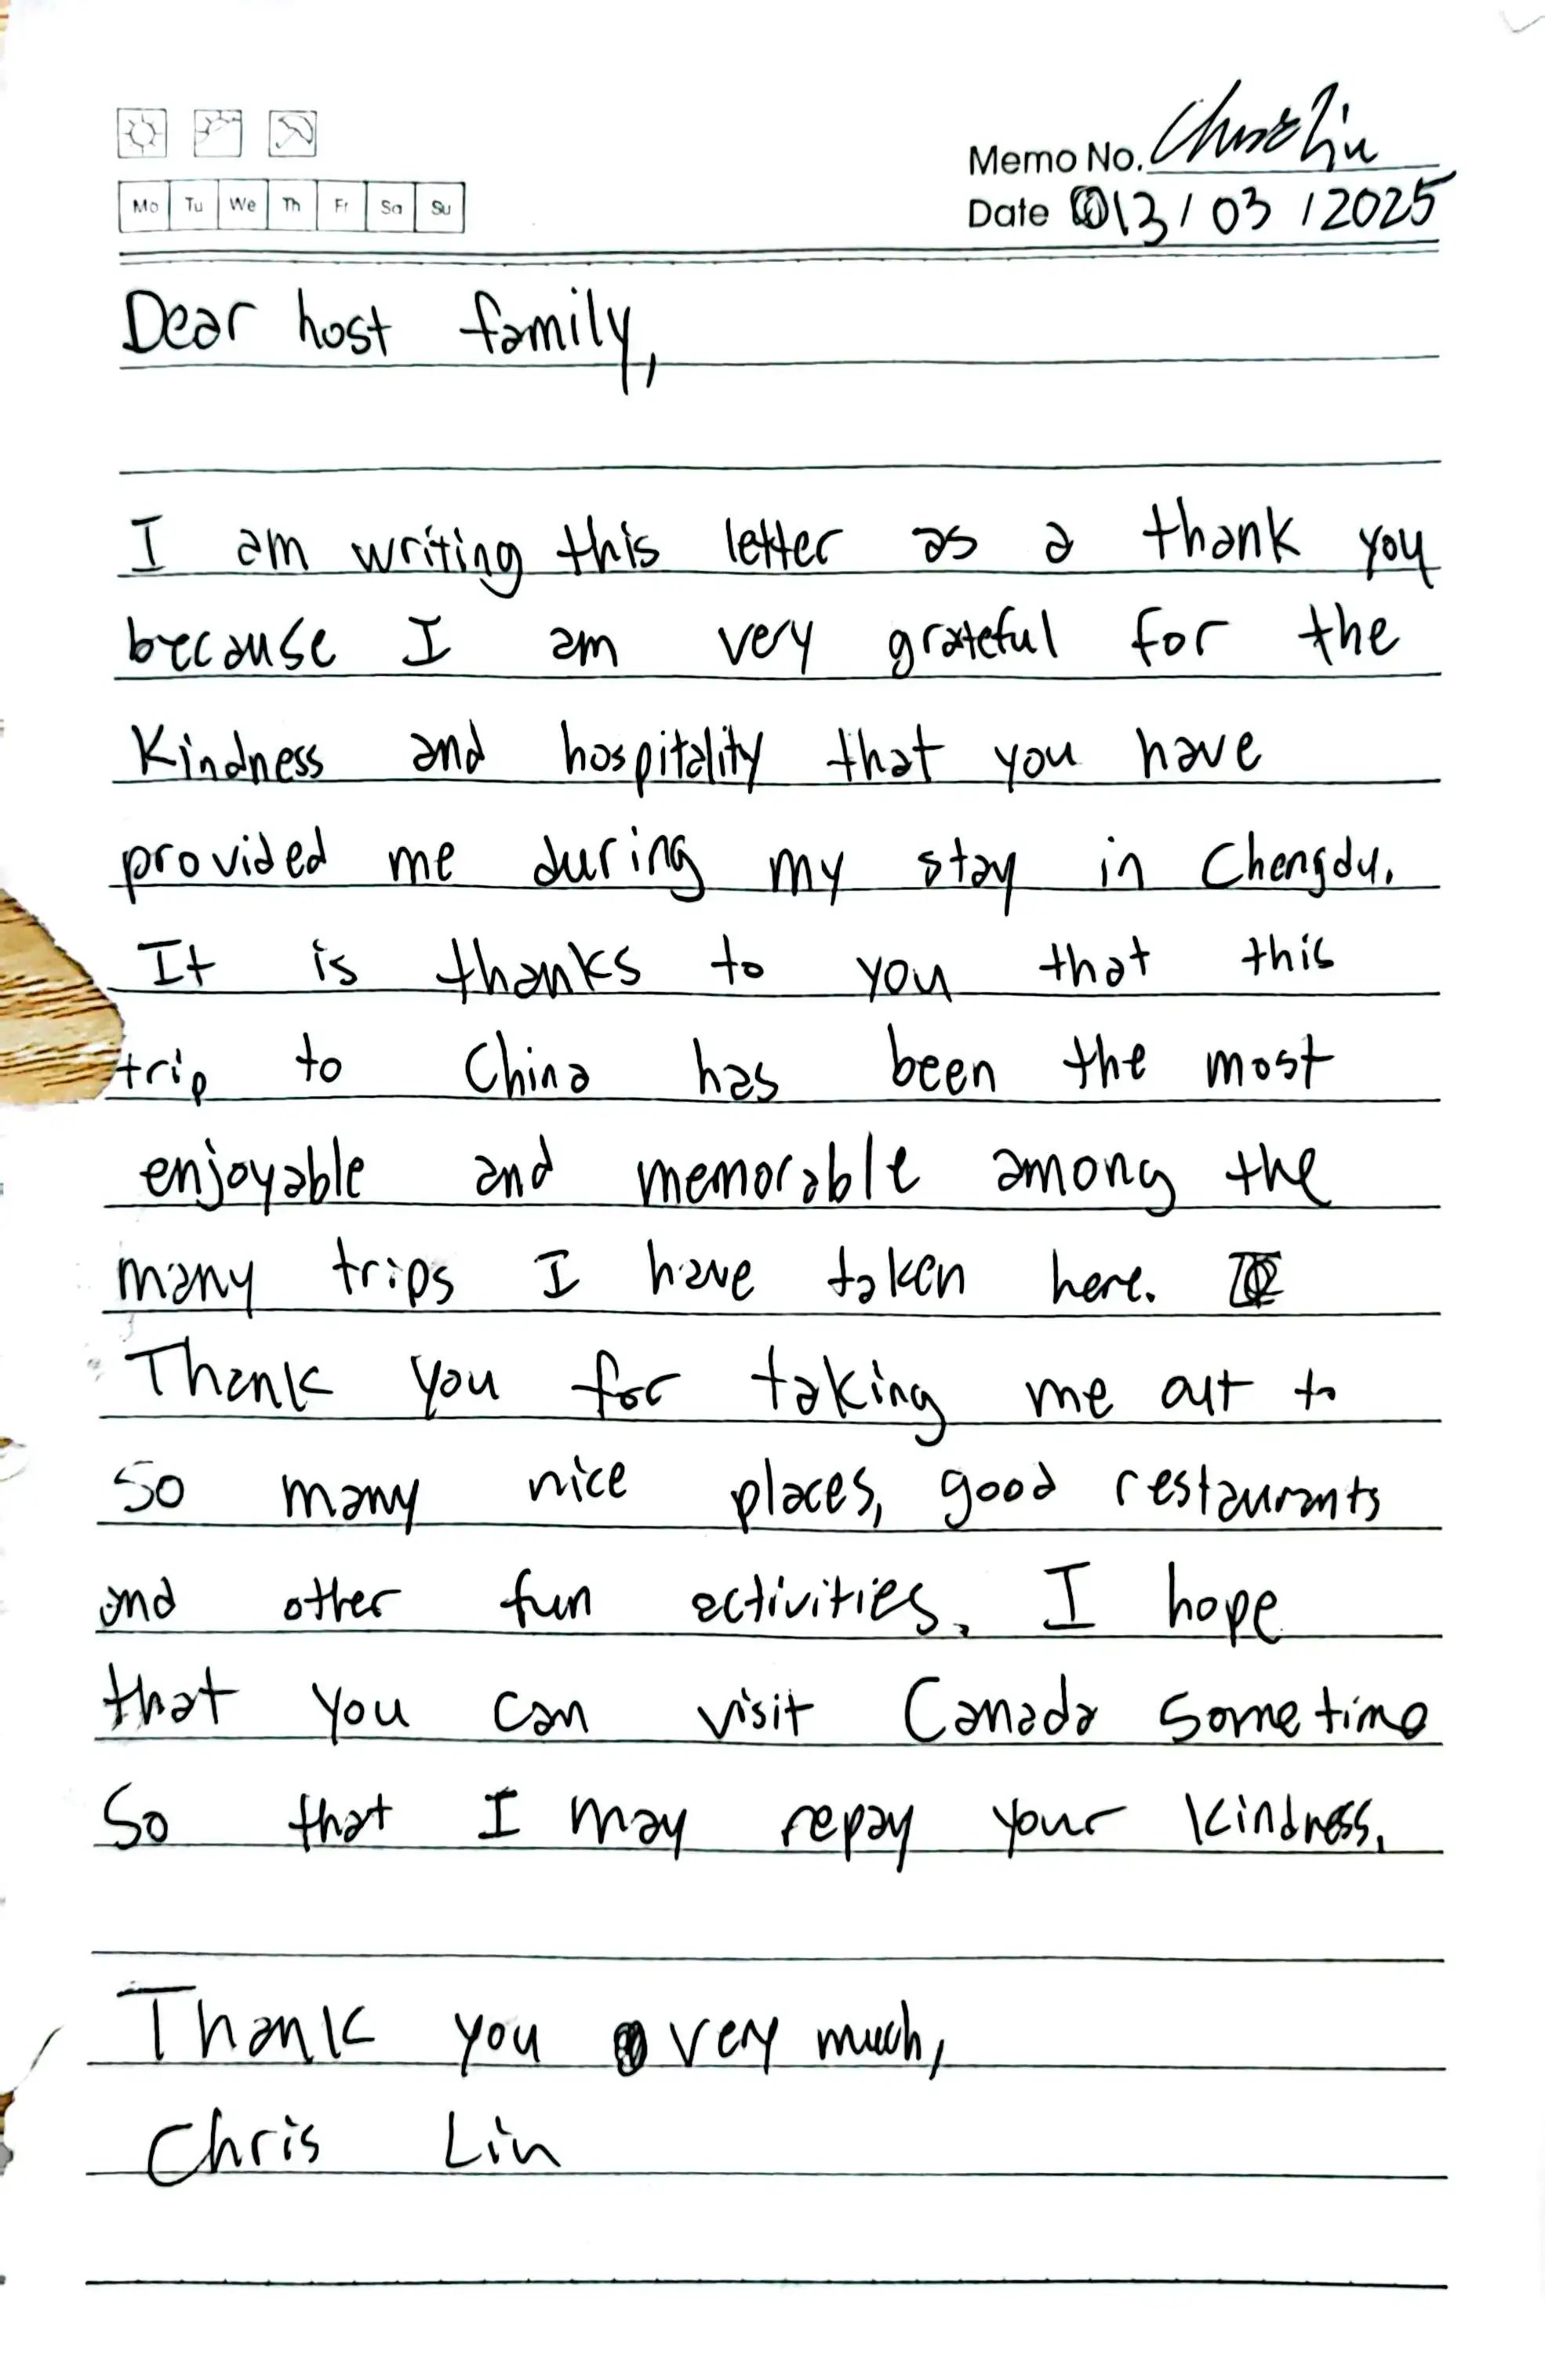 Memo No. Chris Lin
Mo Tu We Th Fr Sa Su
Date 13/03/2025
Dear host family,
I am writing this letter as a thank you
because I am very grateful for the
Kindness and hospitality that you have
provided me during my stay in Chengdu.
It is thanks to you that this
trip to China has been the most
enjoyable and memorable among the
many trips I have taken here.
Thank you for taking me out to
so many nice places, good restaurants
and other fun activities. I hope
that you can visit Canada sometime
So that I may repay your kindness.
Thank you very much,
Chris Lin